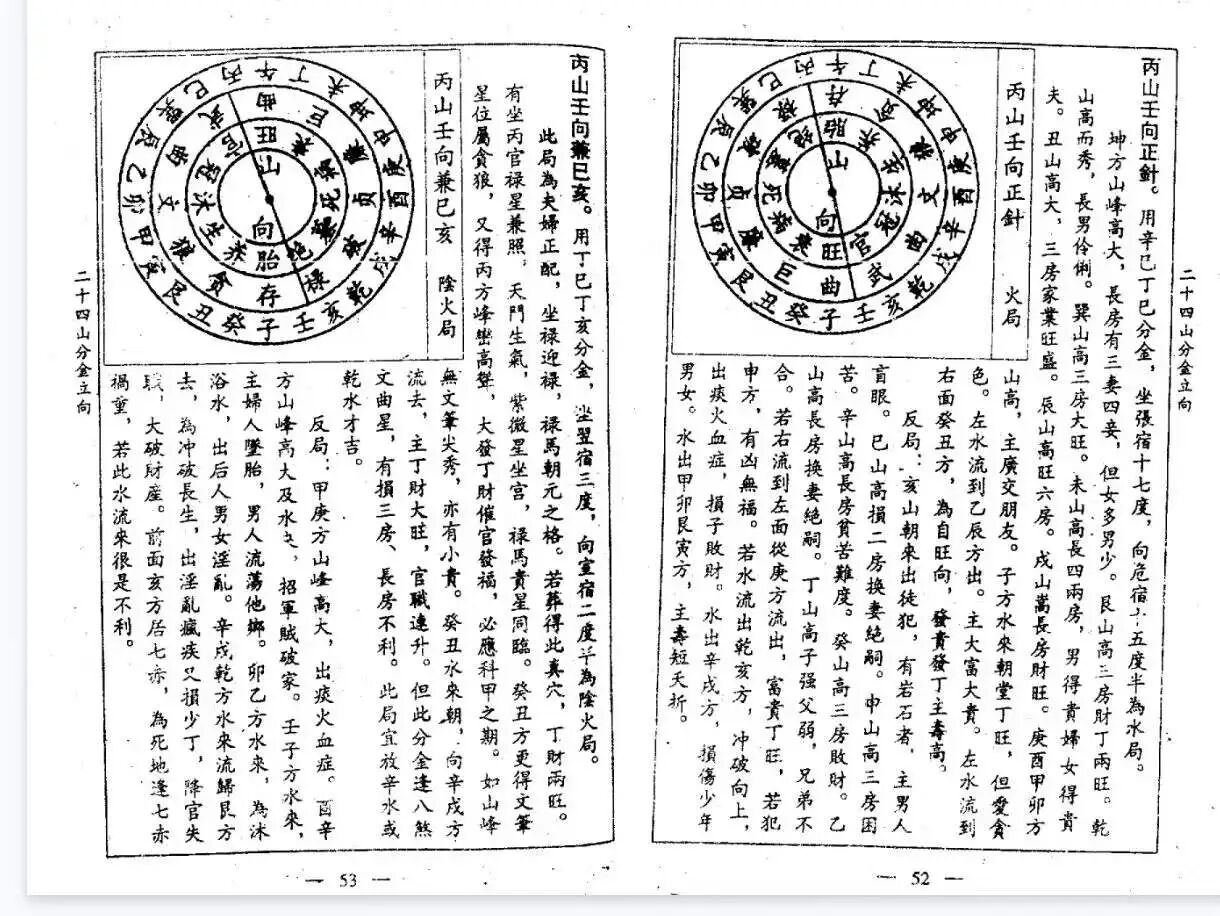 二十四山分金立向
丙山壬向正針。用辛巳丁巳分金，坐張宿十七度，向危宿十五度半為水局。
坤方山峰高大，長房有三妻四妾，但女多男少。艮山高三房財丁兩旺。乾
山高而秀，長男伶俐。巽山高三房大旺。未山高長四兩房，男得貴婦女得貴
夫。丑山高大，三房家業旺盛。辰山高旺六房。戌山嵩長房財旺。庚酉甲卯方
丙山壬向正針 火局
丙午丁未坤申庚酉辛戌乾亥壬子癸丑艮寅甲卯乙辰巽巳
山高，主廣交朋友。子方水來朝堂丁旺，但愛貪
色。左水流到乙辰方出。主大富大貴。左水流到
右面癸丑方，為自旺向，發貴發丁主壽高。
反局：亥山朝來出徒犯，有岩石者，主男人
盲眼。巳山高損二房换妻絶嗣。申山高三房困
苦。辛山高長房貧苦難度。癸山高三房敗財。乙
山高長房换妻絶嗣。丁山高子强父弱，兄弟不
合。若右流到左面從庚方流出，富貴丁旺，若犯
申方，有凶無福。若水流出乾亥方，冲破向上，
出痰火血症，損子敗財。水出辛戌方，損傷少年
男女。水出甲卯艮寅方，主壽短夭折。
— 52 —
丙山壬向兼巳亥。用丁巳丁亥分金，坐翌宿三度，向室宿二度半為陰火局。
此局為夫婦正配，坐禄迎禄，禄馬朝元之格。若葬得此真穴，丁財兩旺。
有坐丙官禄星兼照，天門生氣，紫微星坐宫，禄馬貴星同臨。癸丑方更得文筆
星位屬貪狼，又得丙方峰巒高聳，大發丁財催官發福，必應科甲之期。如山峰
丙山壬向兼巳亥 陰火局
丙午丁未坤申庚酉辛戌乾亥壬子癸丑艮寅甲卯乙辰巽巳
無文筆尖秀，亦有小貴。癸丑水來朝，向辛戌方
流去，主丁財大旺，官職連升。但此分金逢八煞
文曲星，有損三房、長房不利。此局宜放辛水或
乾水才吉。
反局：甲庚方山峰高大，出痰火血症。酉辛
方山峰高大及水，招軍賊破家。壬子方水來，
主婦人墜胎，男人流蕩他鄉。卯乙方水來，為沐
浴水，出后人男女淫亂。辛戌乾方水來流歸艮方
去，為冲破長生，出淫亂瘋疾又損少丁，降官失
職，大破財産。前面亥方居七赤，為死地逢七赤
禍重，若此水流來很是不利。
二十四山分金立向
— 53 —